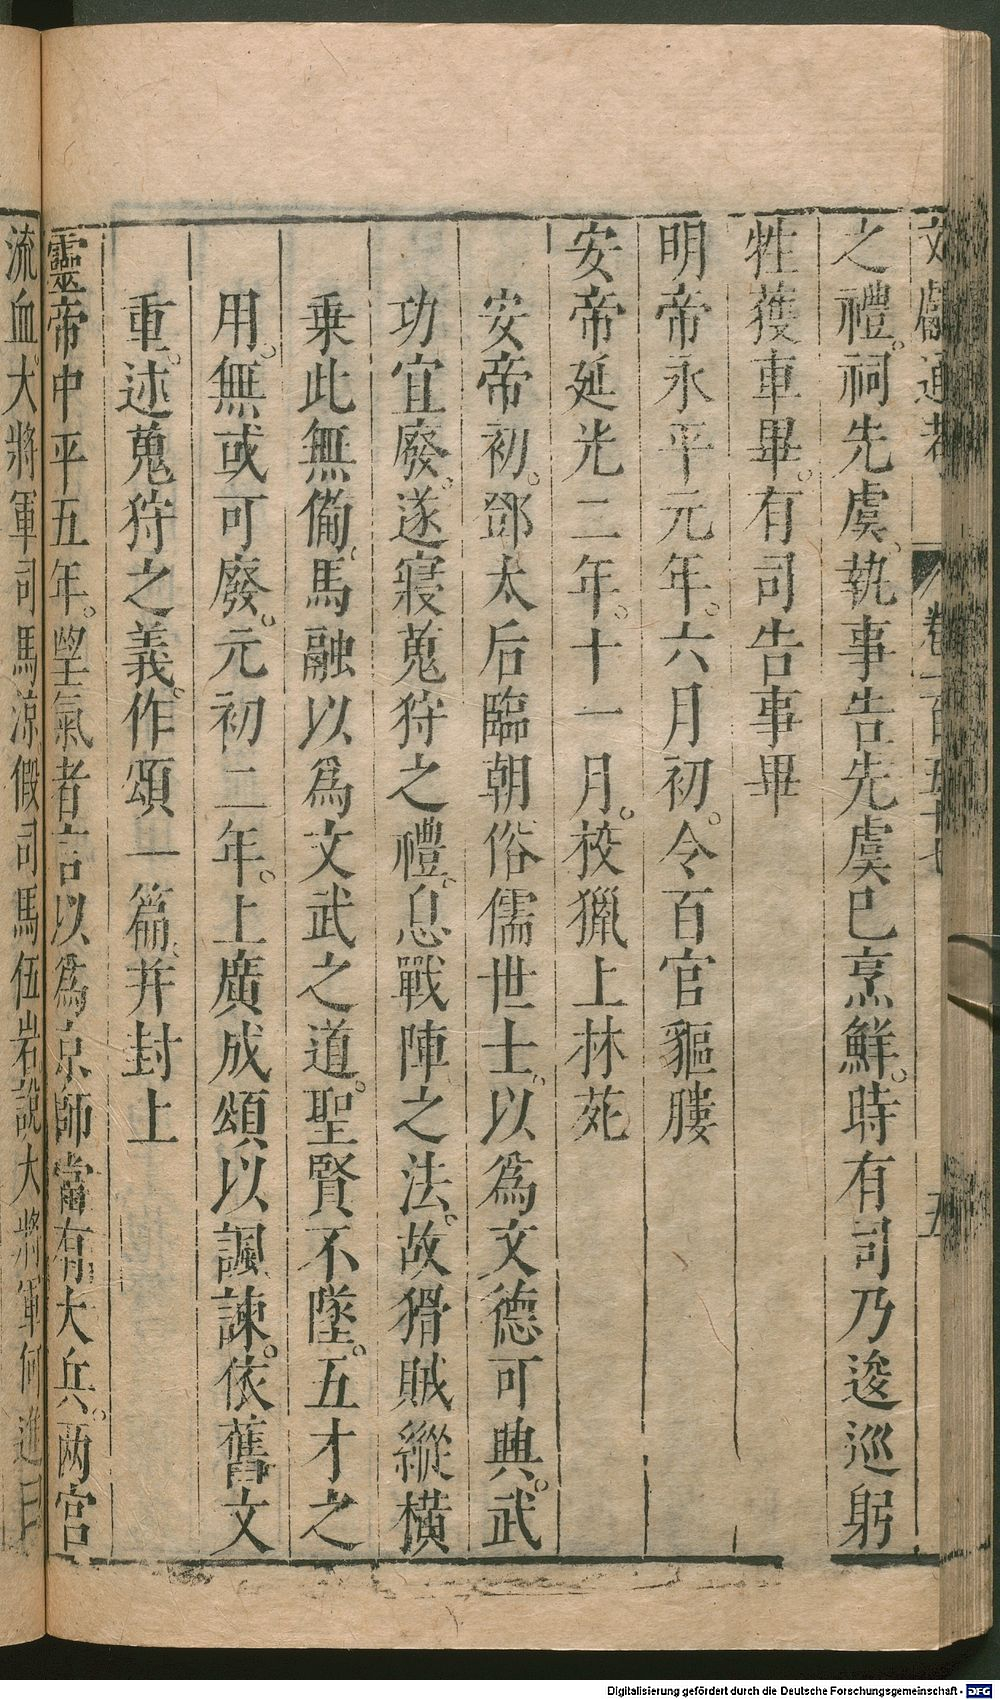 文獻通考 卷一百五十七 五
之禮。祠先虞。執事告先虞巳烹鮮。時有司乃逡巡躬
牲獲車畢。有司告事畢
明帝永平元年。六月初。令百官貙膢
安帝延光二年。十一月。校獵上林苑
安帝初。鄧太后臨朝俗儒世士。以爲文德可興。武
功宜廢。遂寢蒐狩之禮。息戰陣之法。故猾賊縱橫
乗此無備。馬融以爲文武之道。聖賢不墜。五才之
用。無或可廢。元初二年。上廣成頌以諷諫。依舊文
重。述蒐狩之義。作頌一篇。并封上
靈帝中平五年。望氣者言以爲京師當有大兵。两宮
流血。大將軍司馬涼假司馬伍宕說大將軍何進曰
Digitalisierung gefördert durch die Deutsche Forschungsgemeinschaft - DFG